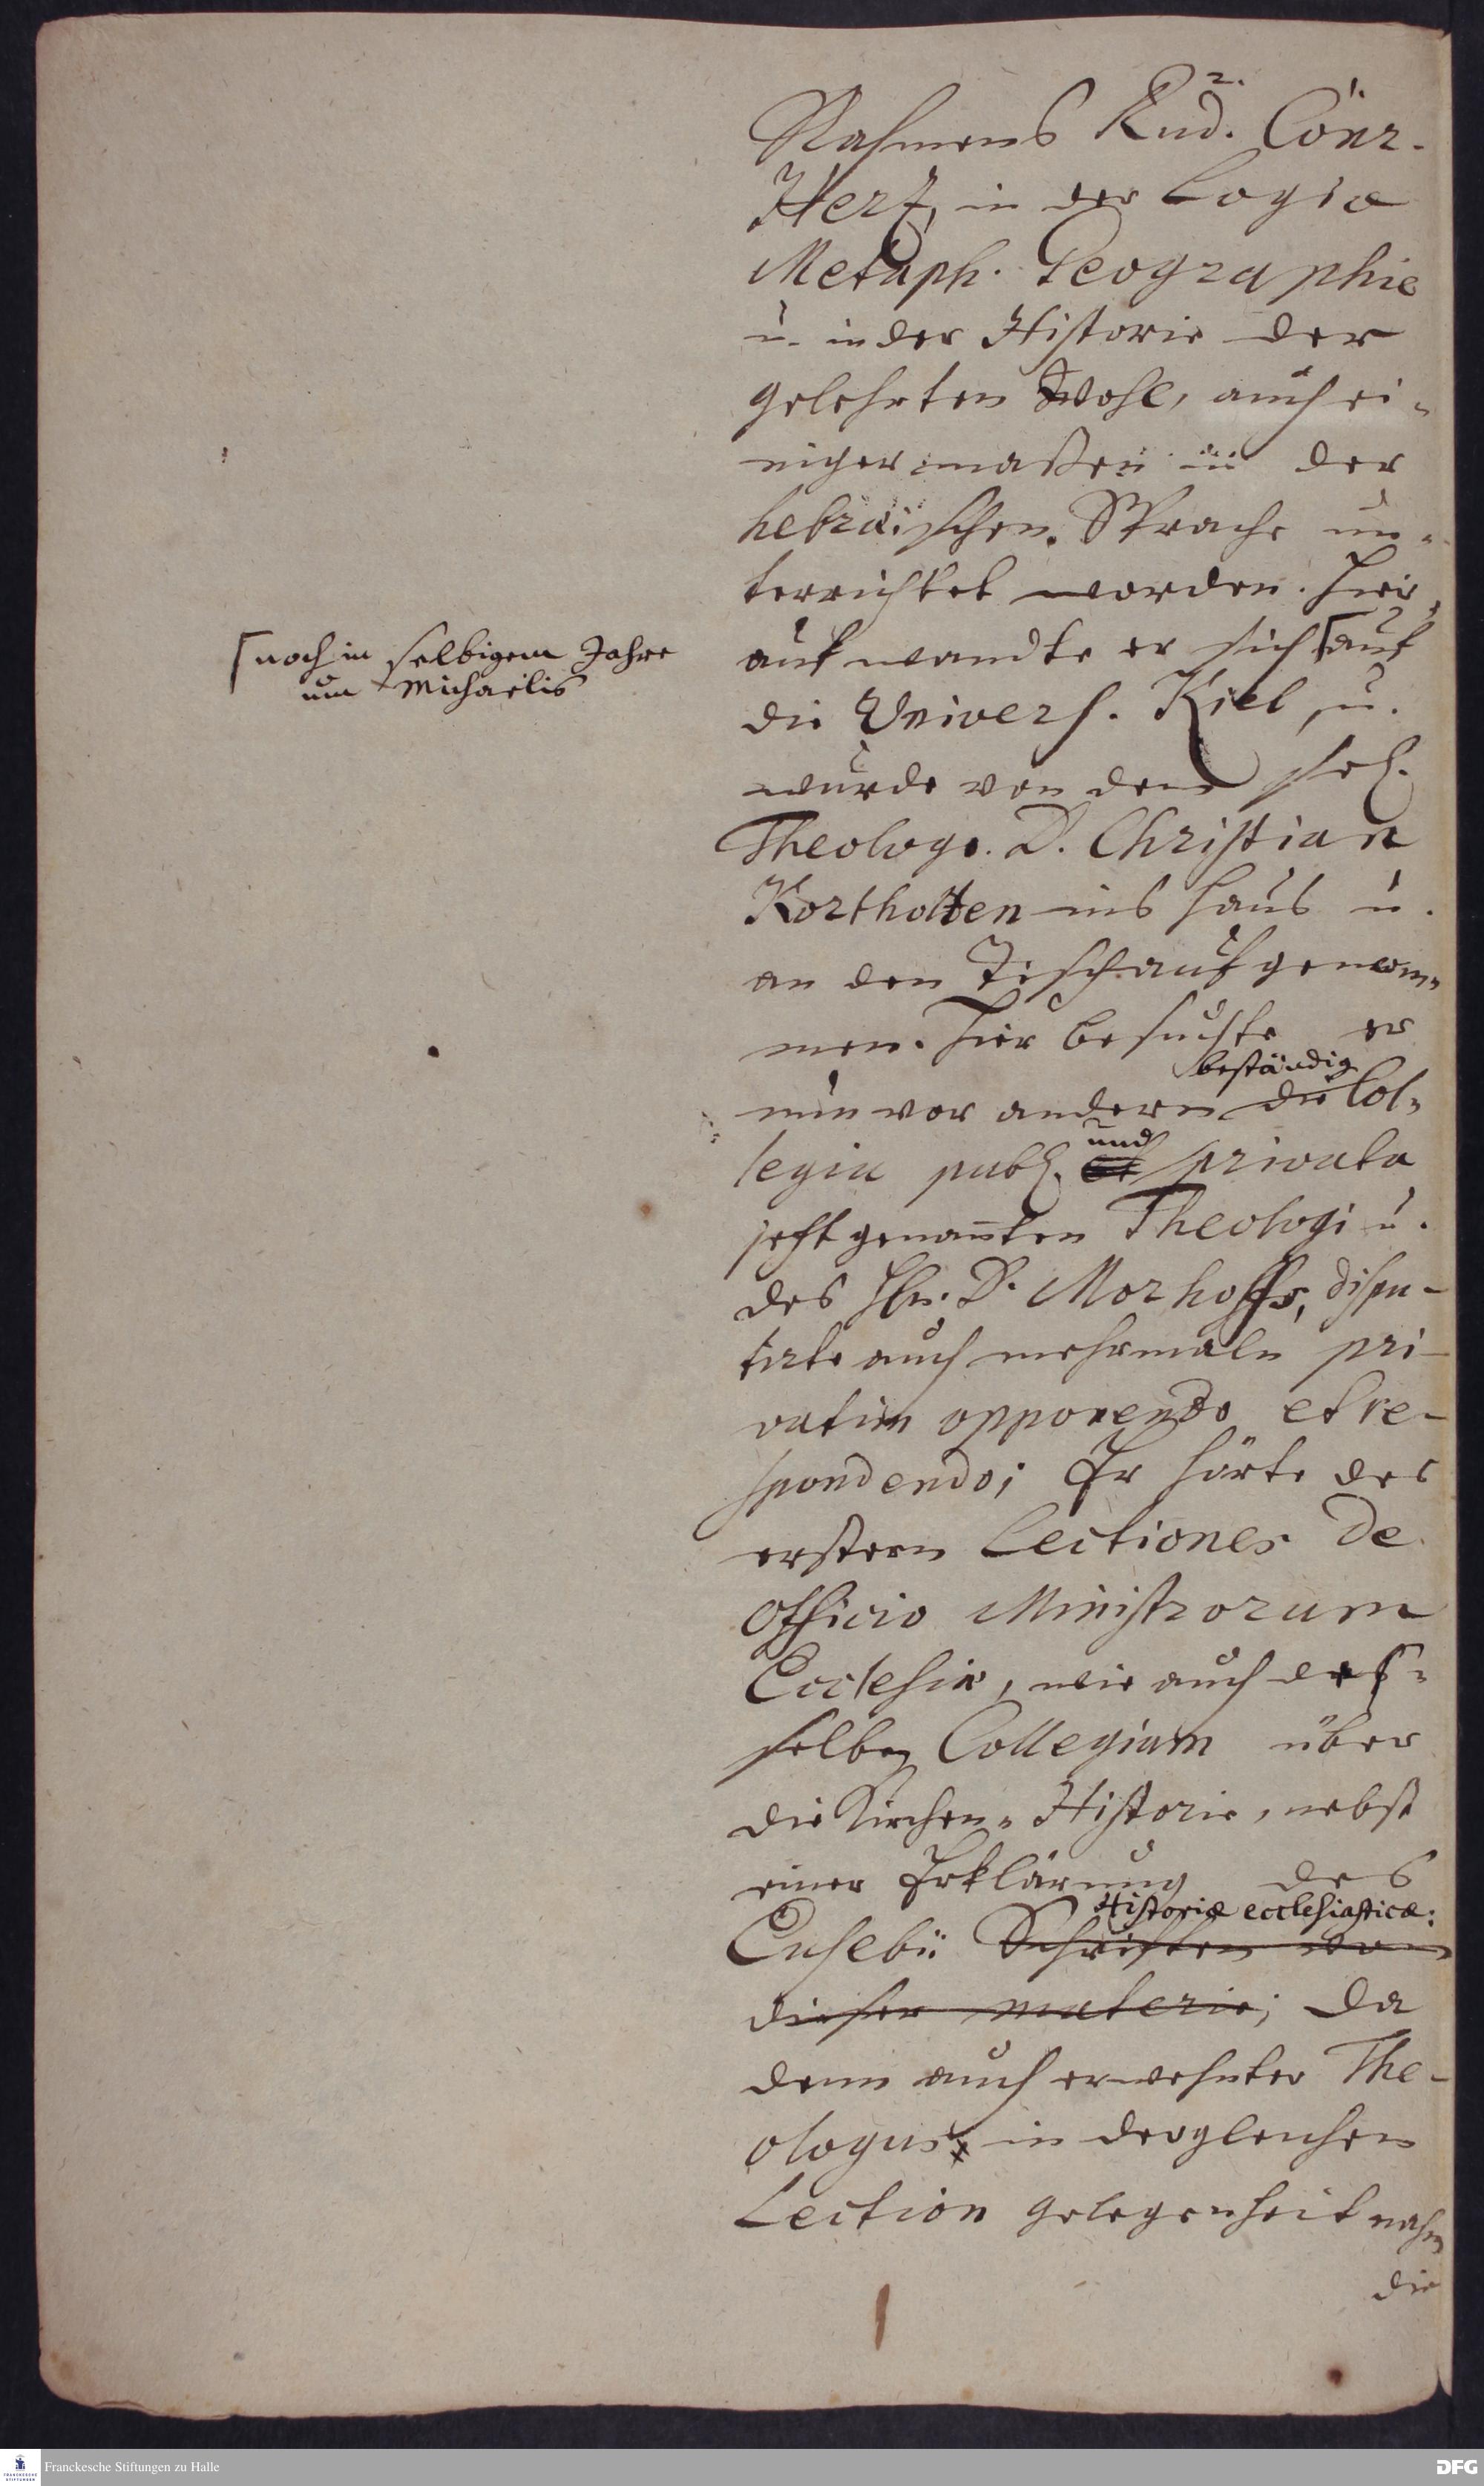 Nahmens Rud. Conr.
Hertz, in der Logic
Metaph. Geographie
u. in der Historie der
gelehrten wohl, auch ei-
nigermaßen in der
hebräischen Sprache un-
terrichtet worden. Hier-
auf wandte er sich ⌈auf
⌈noch in selbigem Jahre
um Michaelis
die Univers. Kiel, u.
wurde von dem sel.
Theologo D. Christian
Kortholten ins Haus u.
an den Tisch aufgenom-
men. Hier besuchte er
beständig
nun vor andern die Col-
legia publ. und privata
jetztgenannten Theologi u.
des Hn. D. Morhoffs, dispu-
tirte auch mehrmaln pri-
vatim opponendo et re-
spondendo; Er hörte des
erstern Lectiones de
Officio Ministrorum
Ecclesiæ, wie auch des-
selben Collegium über
die Kirchen-Historie, nebst
einer Erklärung des
Historiæ ecclesiasticæ:
Eusebii Schriften von
dieser materie; da
denn auch erwehnter The-
ologus in dergleichen
Lection gelegenheit nahm
die
Franckesche Stiftungen zu Halle
DFG